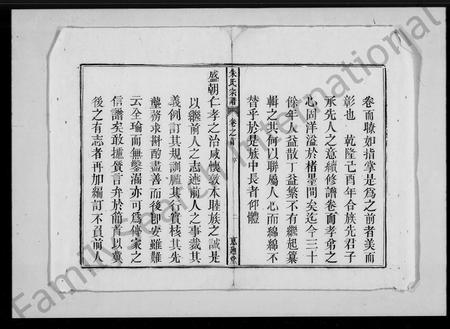 卷而瞭如指掌是為之前者美而
彰也 乾隆己酉年合族先君子
承先人之意續修譜卷而孝弟之
心固洋溢於楮墨間矣迄今三十
餘年人益散丁益繁不有繼起纂
輯之其何以聯屬人心而綿綿不
替乎於是族中長者仰體
朱氏宗譜 卷之首
惠迪堂
盛朝仁孝之治咸懷敦本睦族之誠是
以繼前人之志述前人之事裁其
義例訂其規訓臚其行實核其先
塋務求斟酌盡善而後即安雖難
云全瑜而無纇亦可為傳家之
信譜矣敢摭質言弁於簡首以冀
後之有志者再加纘訂不負前人
FamilySearch International